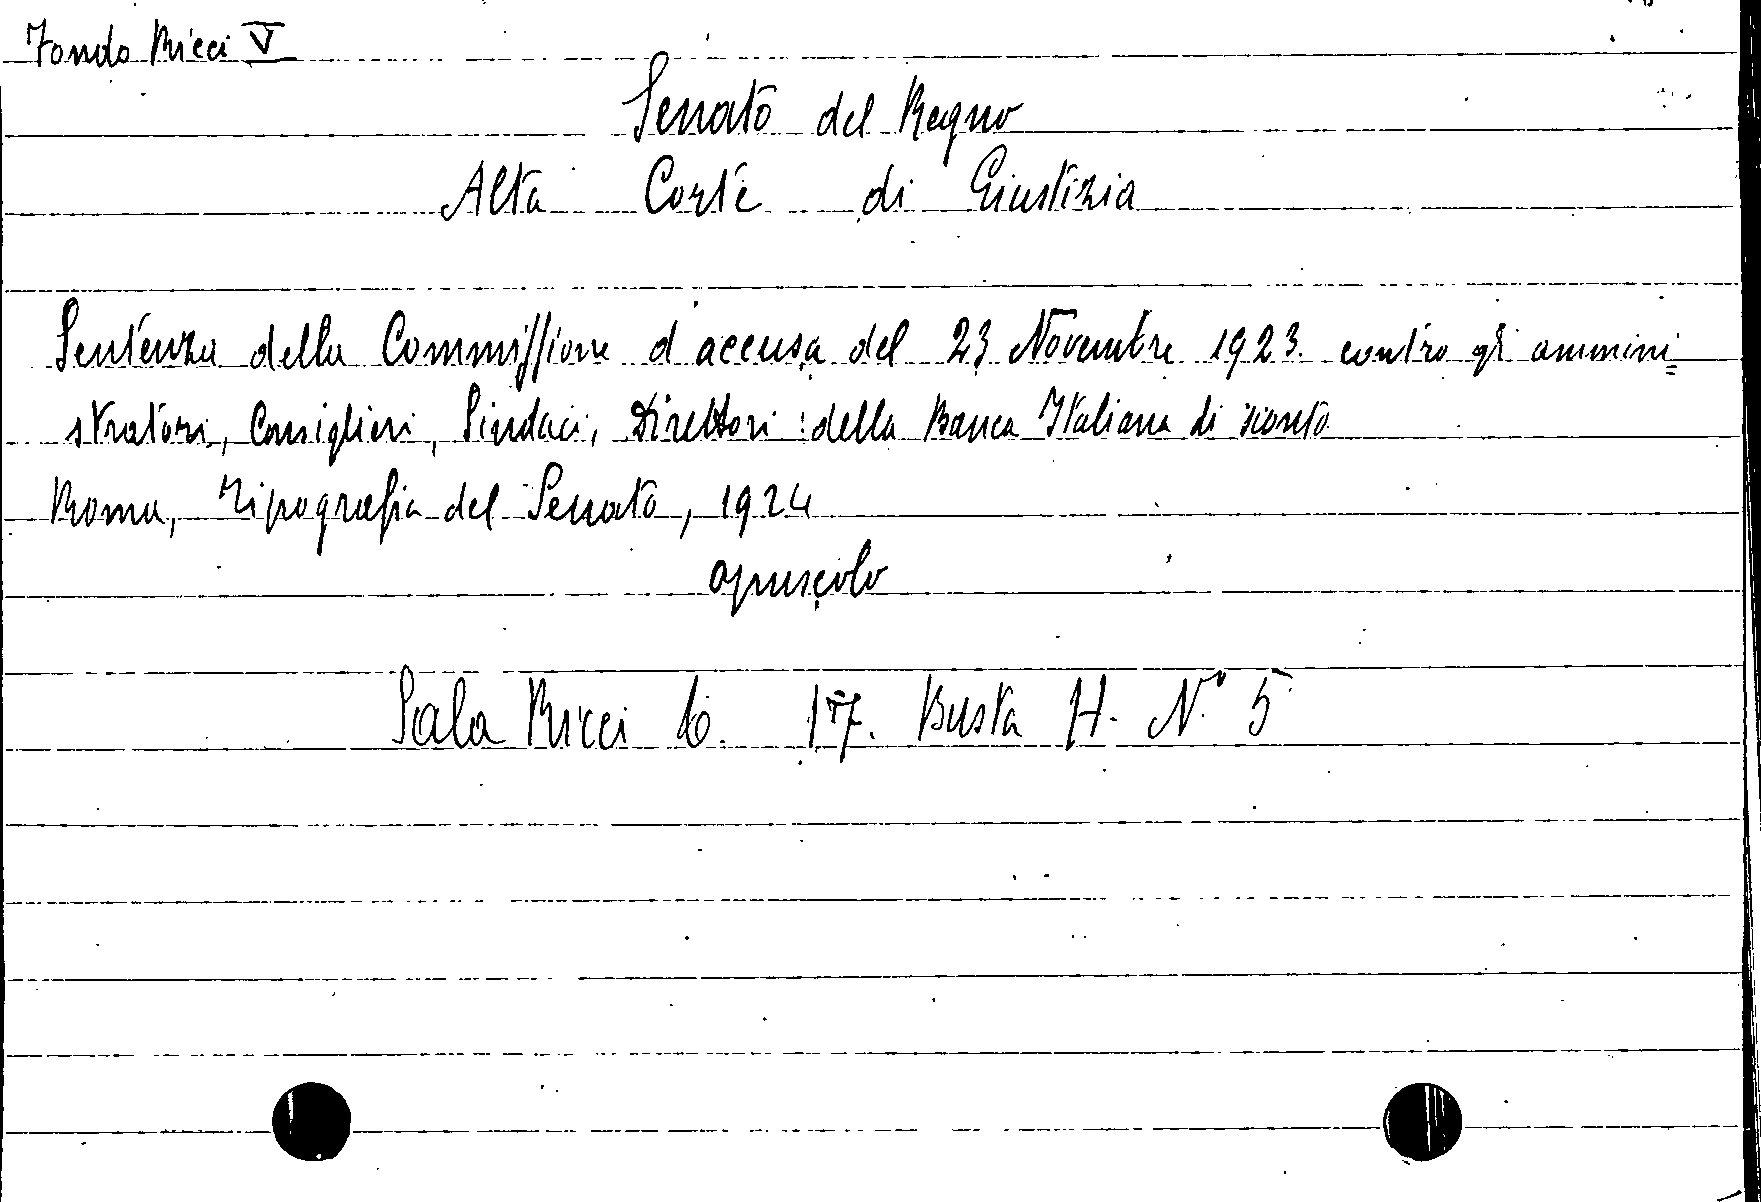 Fondo Ricci V
Senato del Regno
Alta Corte di Giustizia
Sentenza della Commissione d'accusa del 23 Novembre 1923. contro gli ammini=
stratori, Consiglieri, Sindaci, Direttori della Banca Italiana di sconto
Roma, Tipografia del Senato, 1924
opuscolo
Sala Ricci 17. Busta H. N.° 5